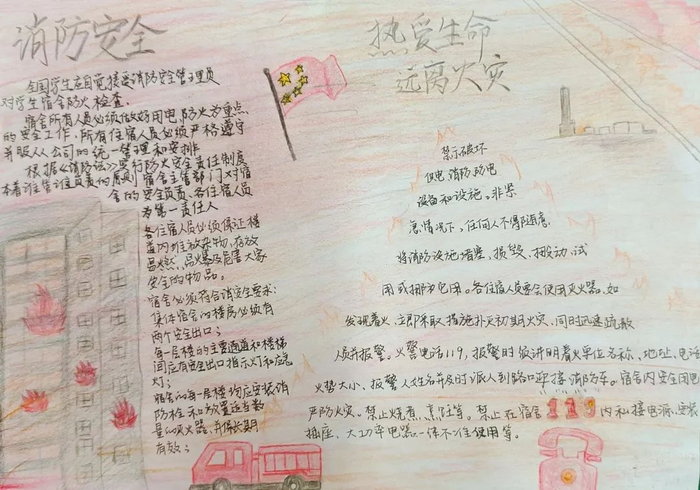 消防安全
热爱生命
远离火灾
全国学生应自觉接受消防安全管理员
对学生宿舍防火检查.
宿舍所有人员必须做好用电,防火为重点
的安全工作,所有住宿人员必须严格遵守
并服从公司的统一管理和安排
根据《消防法》实行防火安全责任制度
本着谁管谁负责的原则宿舍主管部门对宿
舍的安全负责、各住宿人员
为第一责任人
各住宿人员必须保证楼
道内堆放杂物,存放
易燃、易爆及危害大家
安全的物品。
宿舍必须符合消安全要求:
集体宿舍的楼房必须有
两个安全出口;
每一层楼的主要通道和楼梯
间应有安全出口指示灯和应急
灯;
宿舍的每一层楼均应安装消
防栓和放置适当数
量的灭火器,并保长期
有效;
禁示破坏
供电消防,防电
设备和设施。非紧
急情况下,任何人不得随意
将消防设施堵塞,损毁、挪动,试
用或挪为它用。各住宿人员要会使用灭火器,如
发现着火,立即采取措施扑灭初期火灾,同时迅速疏散
人员并报警。火警电话119,报警时做讲明着火单位名称、地址,电话
火势大小、报警人姓名并及时派人到路口迎接消防车。宿舍内安全用电
严防火灾、禁止烧煮、烹饪等。禁止在宿舍
119
内和接电源,安装
插座、大功率电器一律不准使用等。